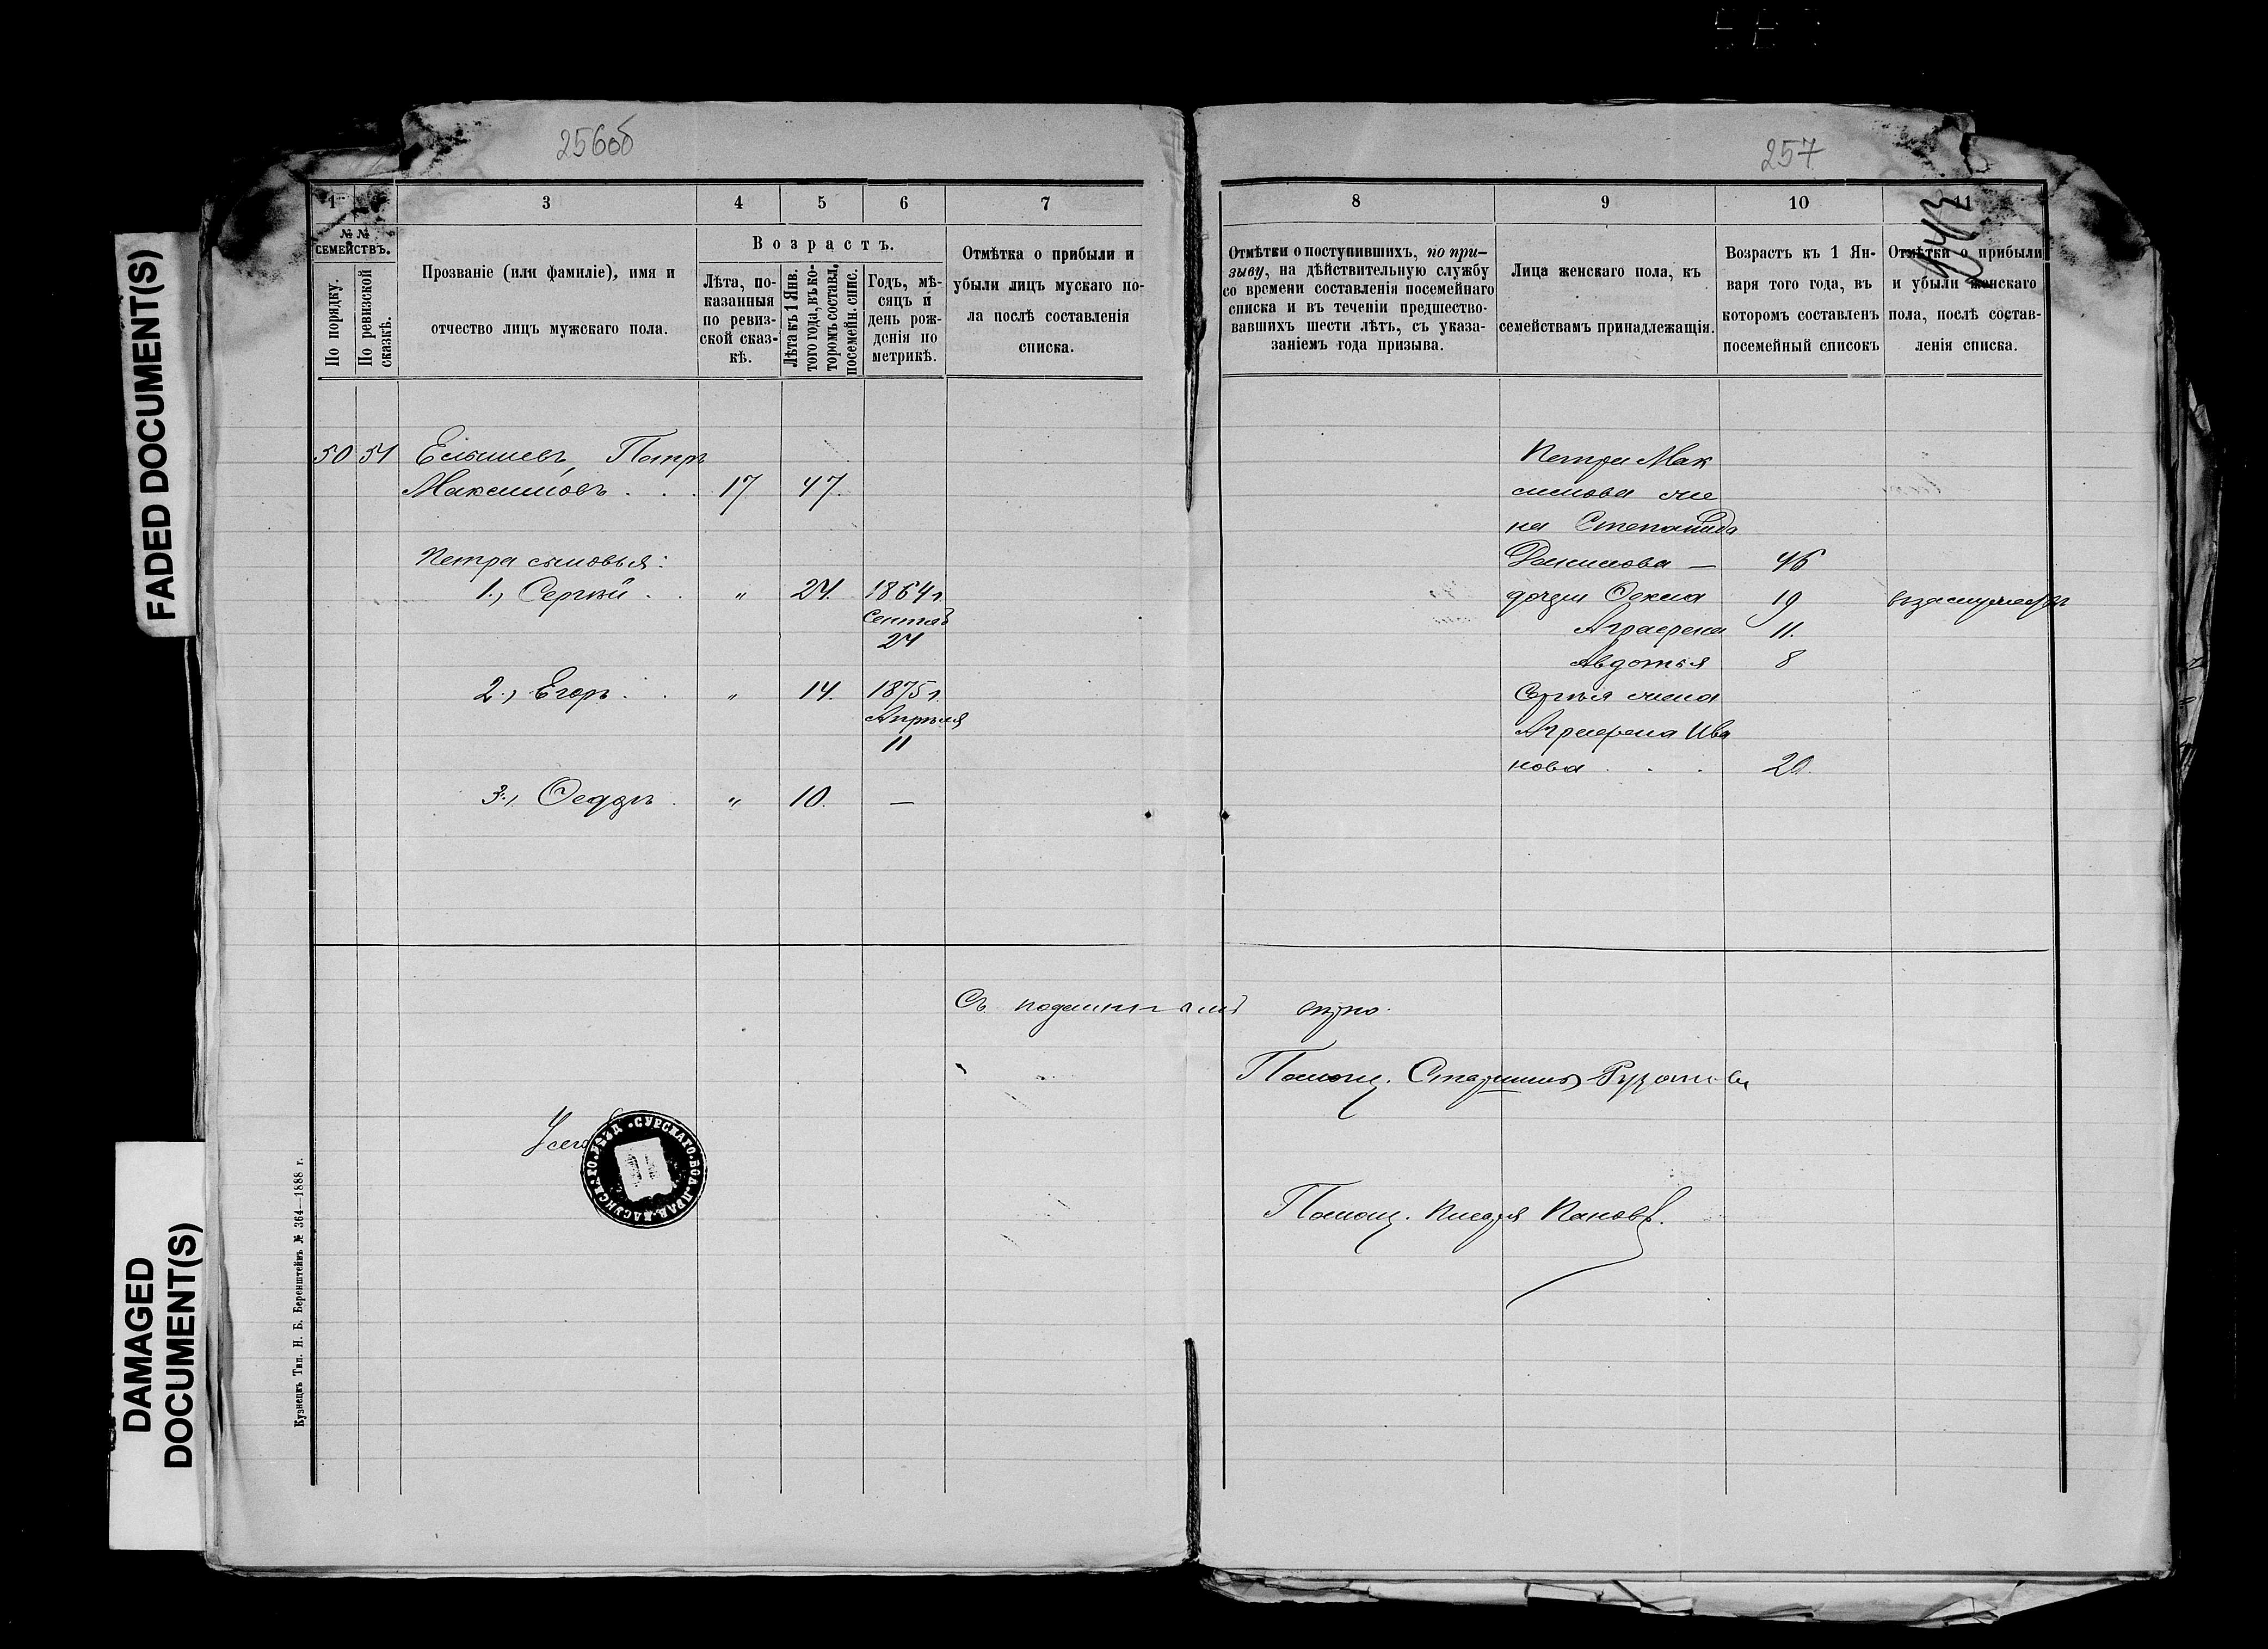 FADED DOCUMENT(S)
DAMAGED
DOCUMENT(S)
256об
1
3
4
5
6
7
№ №
СЕМЕЙСТВЪ.
По порядку.
По ревизской
сказкѣ.
Прозваніе (или фамиліе), имя и
отчество лицъ мужскаго пола.
Возрастъ.
Лѣта, по-
казанныя
по ревиз-
ской сказ-
кѣ.
Лѣта къ 1 Янв.
того года, въ ко-
торомъ составл.
посемейн. спис.
Годъ, мѣ-
сяцъ и
день рож-
денія по
метрикѣ.
Отмѣтка о прибыли и
убыли лицъ мускаго по-
ла послѣ составленія
списка.
50 51 Петръ
Максимовъ . . . 17 47.
Петра сыновья:
1., Сергѣй . . „ 24. 1864 г.
Сентяб
24
2., Егоръ . . „ 14. 1875 г.
Апрѣля
11
3., Ѳедоръ . „ 10. —
Съ
Кузнецкъ Тип. Н. Б. Беренштейнъ № 364—1888 г.
СУРСКАГО ВОЛ. ПРАВ.
257
8
9
10
11
Отмѣтки о поступившихъ, по при-
зыву, на дѣйствительную службу
со времени составленія посемейнаго
списка и въ теченіи предшество-
вавшихъ шести лѣтъ, съ указа-
заніемъ года призыва.
Лица женскаго пола, къ
семействамъ принадлежащія.
Возрастъ къ 1 Ян-
варя того года, въ
которомъ составленъ
посемейный списокъ
Отмѣтки о прибыли
и убыли женскаго
пола, послѣ состав-
ленія списка.
Петра Мак
симова же
на Степанида
Данилова — 46
дочери Ѳекла 19
Аграфена 11.
Авдотья 8
Сергѣя жена
Аграфена Ива
нова . . . 20.
вѣрно.
Помощ. Старшины
Помощ. Писаря Пановъ.